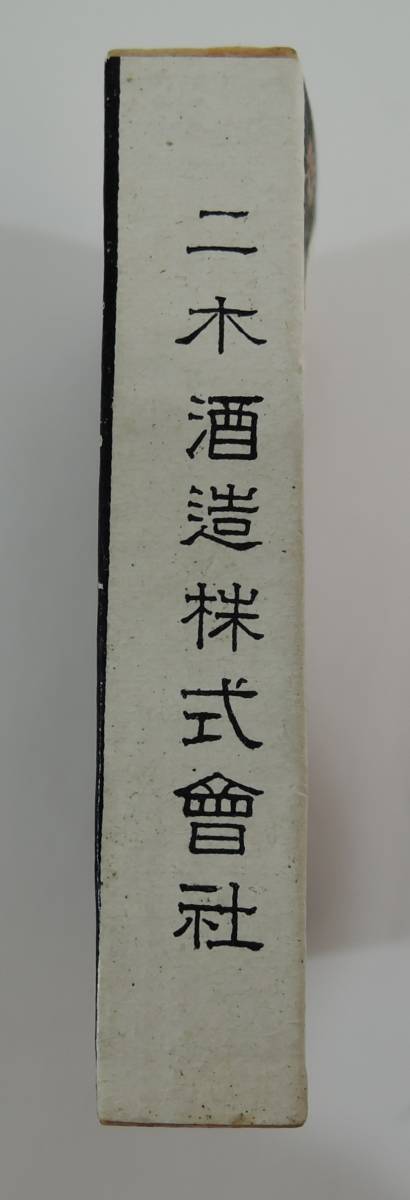 二木酒造株式會社